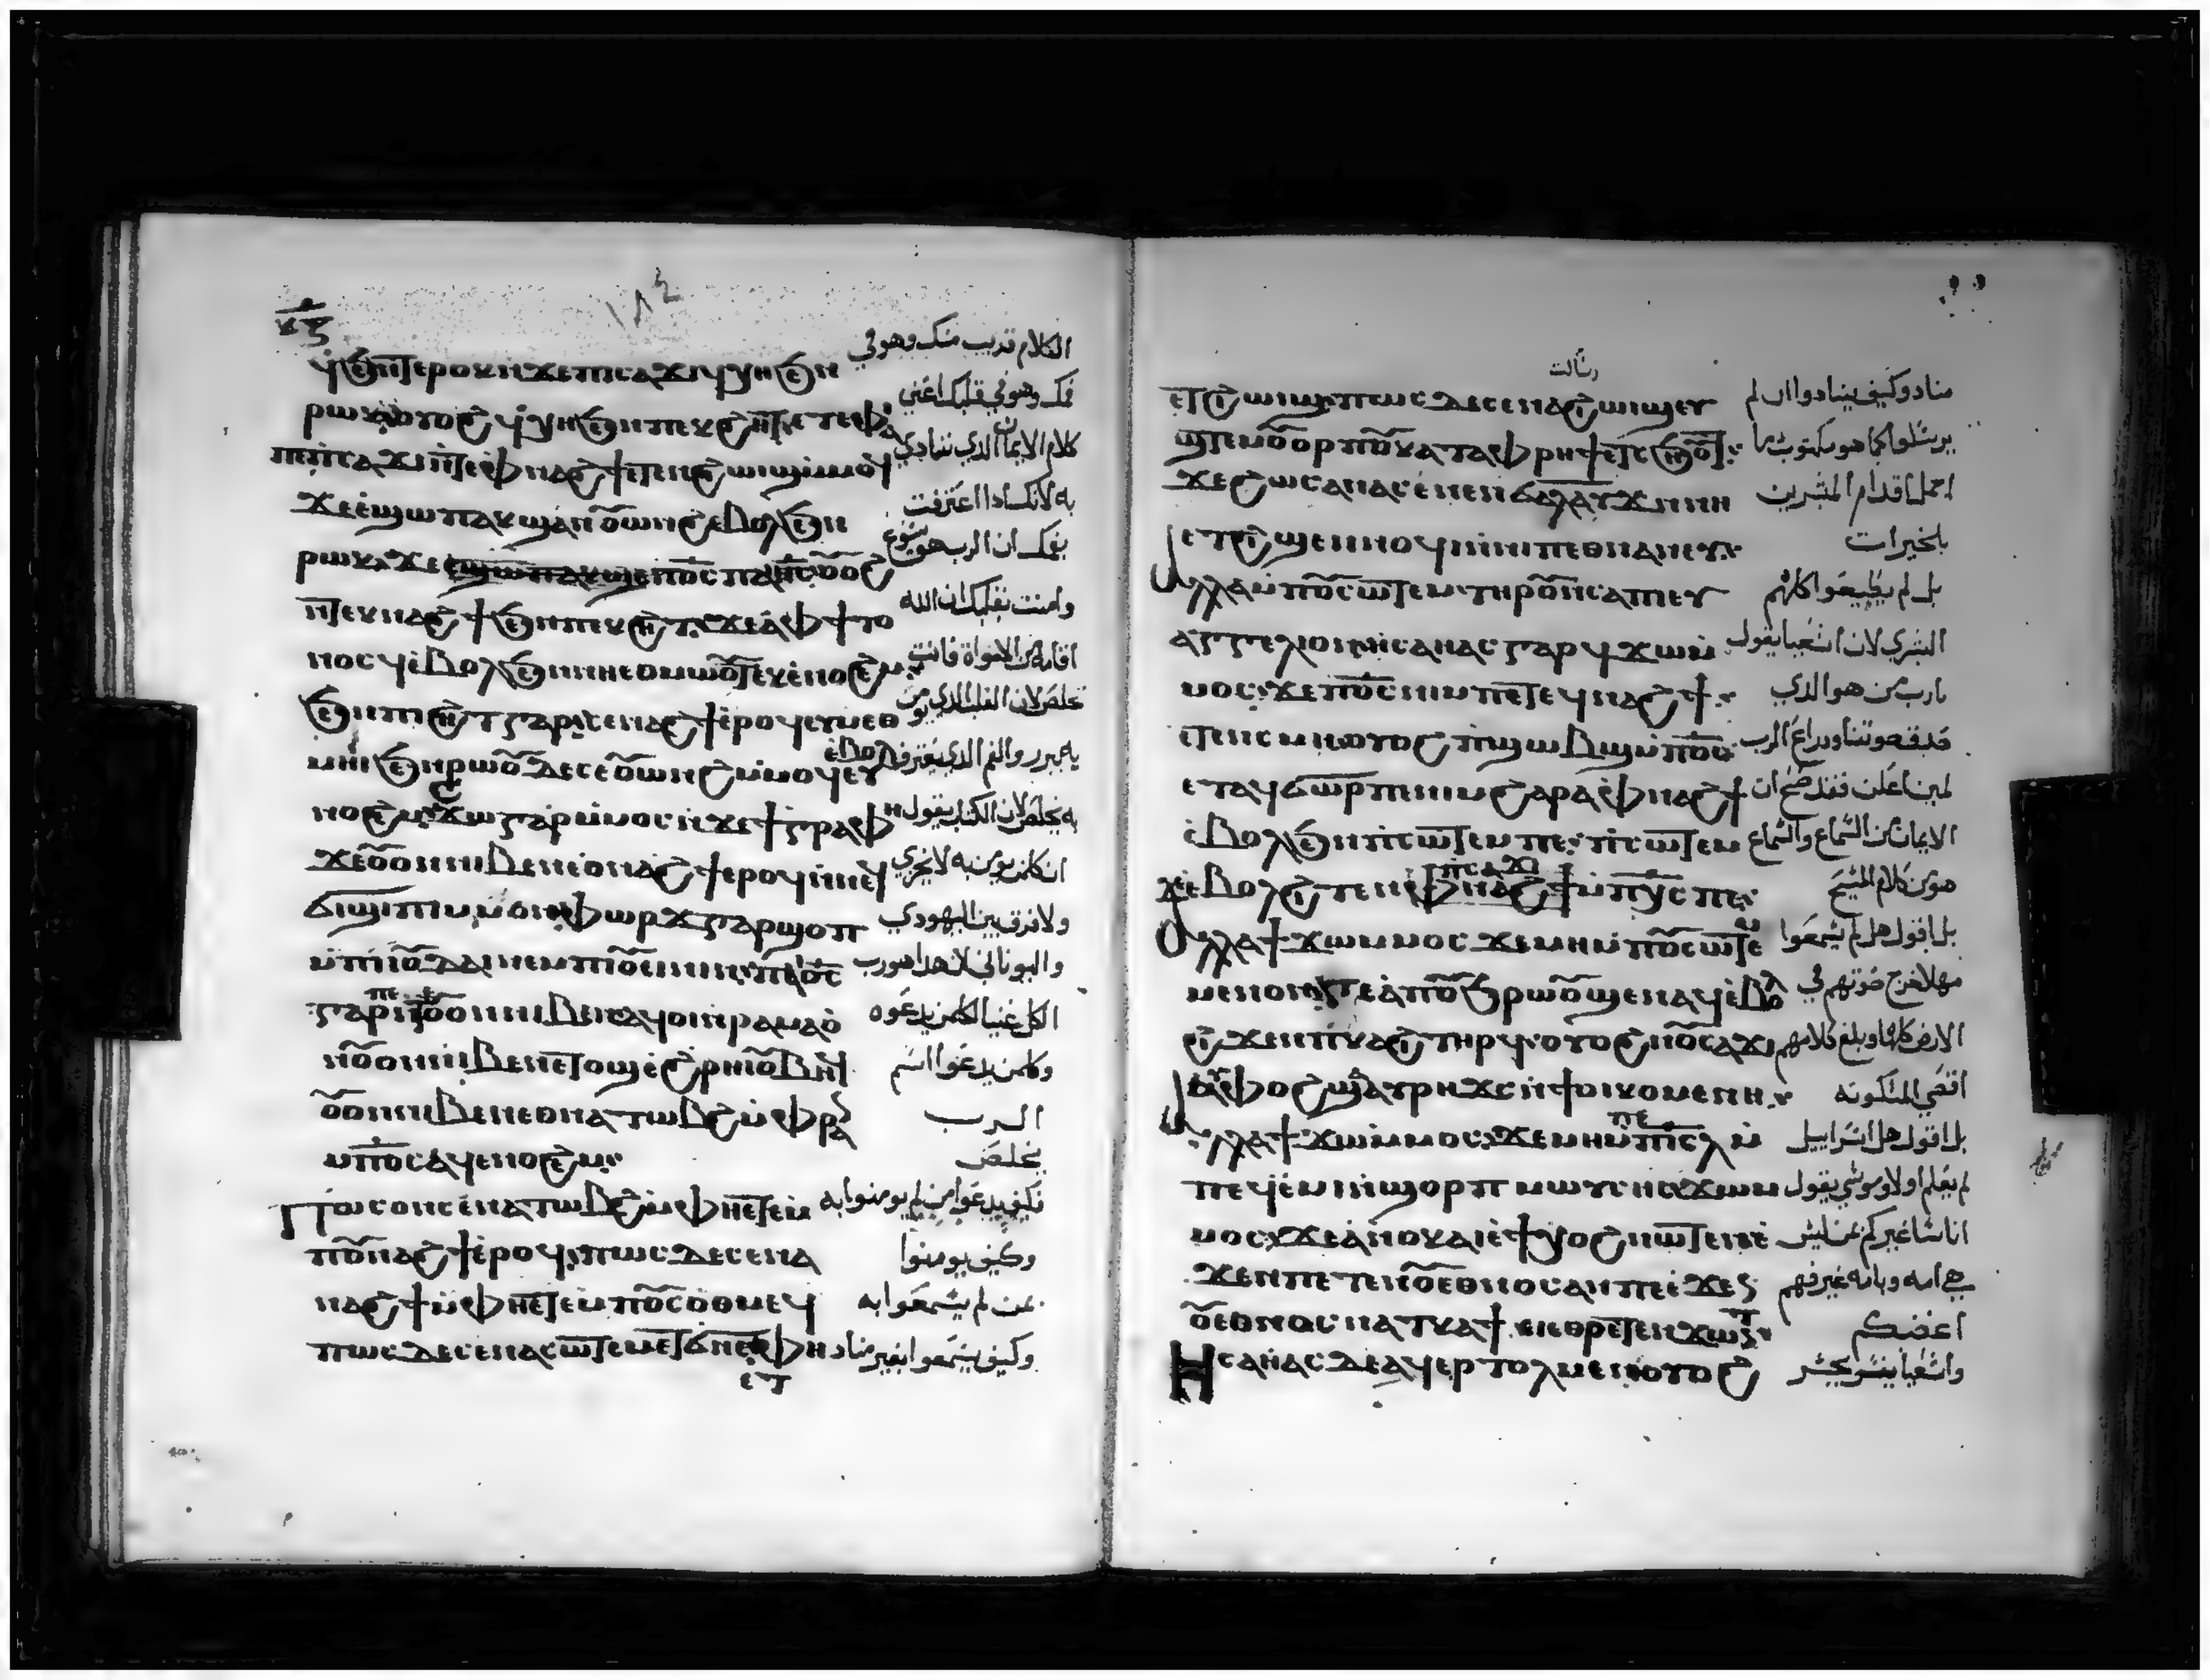 ⲩⲍ
١٨٢
ϥϧⲉⲛⲧ ⲉⲣⲟⲕ ⲛϫⲉⲡⲓⲥⲁϫⲓ ϥⲭⲏ ϧⲉⲛ الكلام قريب منك وهو في
ⲣⲱⲕ ⲟⲩⲟϩ ϥⲭⲏ ϧⲉⲛ ⲡⲉⲕϩⲏⲧ ⲉⲧⲉⲫⲁⲓ فمك وهو في قلبك اعني
ⲡⲉ ⲡⲥⲁϫⲓ ⲛⲧⲉ ⲫⲛⲁϩϯ ⲉⲧⲉⲛϩⲓⲱⲓϣ ⲙⲙⲟϥ كلام الايمان الذي ننادي
ϫⲉ ⲉϣⲱⲡ ⲁⲕϣⲁⲛⲟⲩⲱⲛϩ ⲉⲃⲟⲗ ϧⲉⲛ به لانك اذا اعترفت
ⲣⲱⲕ ϫⲉ ⲡⲟ̅ⲥ̅ ⲡⲉ ⲓⲏ̅ⲥ̅ ⲟⲩⲟϩ بفمك ان الرب هو يسوع
ⲛⲧⲉⲕⲛⲁϩϯ ϧⲉⲛ ⲡⲉⲕϩⲏⲧ ϫⲉ ⲁ ⲫϯ ⲧⲟⲩ وامنت بقلبك ان الله
ⲛⲟⲥϥ ⲉⲃⲟⲗ ϧⲉⲛ ⲛⲏ ⲉⲑⲙⲱⲟⲩⲧ ⲉⲕⲉⲛⲟϩⲉⲙ اقامه من الاموات فانت
ϧⲉⲛ ⲡϩⲏⲧ ⲅⲁⲣ ⲥⲉⲛⲁϩϯ ⲉⲣⲟϥ ⲉⲩⲙⲉⲑ تخلص لان القلب الذي يومن
ⲙⲏⲓ ϧⲉⲛ ⲣⲱⲟⲩ ⲇⲉ ⲥⲉⲟⲩⲱⲛϩ ⲙⲙⲟϥ ⲉⲃⲟⲗ ⲉⲩ به يبرر والفم الذي يعترف
ⲛⲟϩⲉⲙ ϥϫⲱ ⲅⲁⲣ ⲙⲙⲟⲥ ⲛϫⲉ ϯⲅⲣⲁⲫⲏ به يخلص لان الكتاب يقول
ϫⲉ ⲟⲩⲟⲛ ⲛⲓⲃⲉⲛ ⲉⲑⲛⲁϩϯ ⲉⲣⲟϥ ⲛⲛⲉϥ ان كلمن يومن به لا يخزي
ϭⲓϣⲓⲡⲓ ⲙⲙⲟⲛ ⲫⲱⲣϫ ⲅⲁⲣ ϣⲟⲡ ولا فرق بين اليهودي
ⲙⲡⲓⲟⲩⲇⲁⲓ ⲛⲉⲙ ⲡⲓⲟⲩⲉⲓⲛⲓⲛ ⲡⲟ̅ⲥ̅ واليوناني لان هذا هو رب
ⲅⲁⲣ ⲡⲉ ⲛⲧⲉ ⲟⲩⲟⲛ ⲛⲓⲃⲉⲛ ⲉϥⲟⲓ ⲛⲣⲁⲙⲁⲟ الكل غنيا لكلمن يدعوه
ⲛⲟⲩⲟⲛ ⲛⲓⲃⲉⲛ ⲉⲧⲱϣ ⲉϩⲣⲏⲓ ⲟⲩⲃⲏϥ وكلمن يدعوا اسم
ⲟⲩⲟⲛ ⲛⲓⲃⲉⲛ ⲉⲑⲛⲁⲧⲱⲃϩ ⲙⲫⲣⲁⲛ الرب
ⲙⲡⲟ̅ⲥ̅ ⲉϥⲉⲛⲟϩⲉⲙ يخلص
ⲡⲱⲥ ⲟⲩⲛ ⲥⲉⲛⲁⲧⲱⲃϩ ⲙⲫⲏ ⲉⲧⲉⲙ فكيف يدعوا من لم يومنوا به
ⲡⲟⲩⲛⲁϩϯ ⲉⲣⲟϥ ⲡⲱⲥ ⲇⲉ ⲥⲉⲛⲁ وكيف يومنوا
ⲛⲁϩϯ ⲙⲫⲏ ⲉⲧⲉⲙⲡⲟⲩⲥⲟⲑⲙⲉϥ بمن لم يسمعوا به
ⲡⲱⲥ ⲇⲉ ⲥⲉⲛⲁⲥⲱⲧⲉⲙ ⲉⲧϭⲛⲉ ⲫⲏ وكيف يسمعوا بغير مناد
ⲉⲧ
رسالة
ⲉⲧϩⲓⲱⲓϣ ⲡⲱⲥ ⲇⲉ ⲥⲉⲛⲁϩⲓⲱⲓϣ ⲉⲩ مناد وكيف ينادوا ان لم
ϣⲧⲉⲙⲟⲩⲟⲣⲡⲟⲩ ⲕⲁⲧⲁ ⲫⲣⲏϯ ⲉⲧⲥϧⲏⲟⲩⲧ يرسلوا كما هو مكتوب ما
ϫⲉ ϩⲱⲥ ⲁⲛⲁⲥⲉ ⲛⲉⲛϭⲁⲗⲁⲩϫ ⲛⲛⲏ اجمل اقدام المبشرين
ⲉⲧϩⲓϣⲉⲛⲛⲟⲩϥⲓ ⲛⲛⲓⲡⲉⲑⲛⲁⲛⲉⲩ بالخيرات
ⲁⲗⲗⲁ ⲙⲡⲟⲩⲥⲱⲧⲉⲙ ⲧⲏⲣⲟⲩ ⲛⲥⲁ ⲡⲓⲉⲩ بل لم يطيعوا كلهم
ⲁⲅⲅⲉⲗⲓⲟⲛ ⲏⲥⲁⲏⲁⲥ ⲅⲁⲣ ϥϫⲱ ⲙ البشري لان اشعيا يقول
ⲙⲟⲥ ϫⲉ ⲡⲟ̅ⲥ̅ ⲛⲓⲙ ⲡⲉⲧⲉϥⲛⲁϩϯ يارب من هو الذي
ⲉⲧⲉⲛⲥⲙⲏ ⲟⲩⲟϩ ⲡϣⲱⲃϣ ⲙⲡⲟ̅ⲥ̅ صدق صوتنا وذراع الرب
ⲉⲧⲁϥϭⲱⲣⲡ ⲉⲛⲓⲙ ϩⲁⲣⲁ ⲫⲛⲁϩϯ لمن اعلن فقد صح ان
ⲉⲃⲟⲗ ϧⲉⲛ ⲡⲥⲱⲧⲉⲙ ⲡⲉ ⲡⲥⲱⲧⲉⲙ الايمان من السماع والسماع
ⲇⲉ ⲉⲃⲟⲗ ϩⲓⲧⲉⲛ ⲡⲥⲁϫⲓ ⲙⲡⲭ̅ⲥ̅ ⲡⲉ هو من كلام المسيح
ⲁⲗⲗⲁ ϯϫⲱ ⲙⲙⲟⲥ ϫⲉ ⲙⲏ ⲙⲡⲟⲩⲥⲱⲧⲉⲙ بل اقول هل لم يسمعوا
ⲙⲉⲛⲟⲩⲛⲅⲉ ⲁ ⲡⲟⲩϧⲣⲱⲟⲩ ϣⲉⲛⲁϥ ⲉⲃⲟⲗ مهلا خرج صوتهم في
ϩⲓϫⲉⲛ ⲡⲕⲁϩⲓ ⲧⲏⲣϥ ⲟⲩⲟϩ ⲛⲟⲩⲥⲁϫⲓ الارض كلها وبلغ كلامهم
ⲁⲩⲫⲟϩ ϣⲁ ⲁⲩⲣⲏϫⲥ ⲛϯⲟⲓⲕⲟⲩⲙⲉⲛⲏ اقصي المسكونه
ⲁⲗⲗⲁ ϯϫⲱ ⲙⲙⲟⲥ ϫⲉ ⲙⲏ ⲙⲡⲉ ⲡⲓⲥ̅ⲗ̅ ⲙ بل اقول هل اسراييل
ⲡⲉϥⲉⲙⲓ ⲛϣⲟⲣⲡ ⲙⲱⲩⲥⲏⲥ ϫⲱ ⲙ لم يعلم اولا وموسي يقول
ⲙⲟⲥ ϫⲉ ⲁⲛⲟⲕ ⲉⲓⲉϯⲭⲟϩ ⲛⲱⲧⲉⲛ انا ساغيركم بمن ليس
ϫⲉⲛ ⲡⲉⲧⲉ ⲛⲟⲩⲉⲑⲛⲟⲥ ⲁⲛ ⲡⲉ ⲉϫⲉⲛ هي امه وبامه غير فهم
ⲟⲩⲉⲑⲛⲟⲥ ⲛⲁⲧⲕⲁϯ ⲉⲓⲉⲑⲣⲉⲧⲉⲛϫⲱⲛⲧ اغضبكم
ⲏⲥⲁⲏⲁⲥ ⲇⲉ ⲁϥⲉⲣⲧⲟⲗⲙⲉⲛ ⲟⲩⲟϩ واشعيا يتجسر